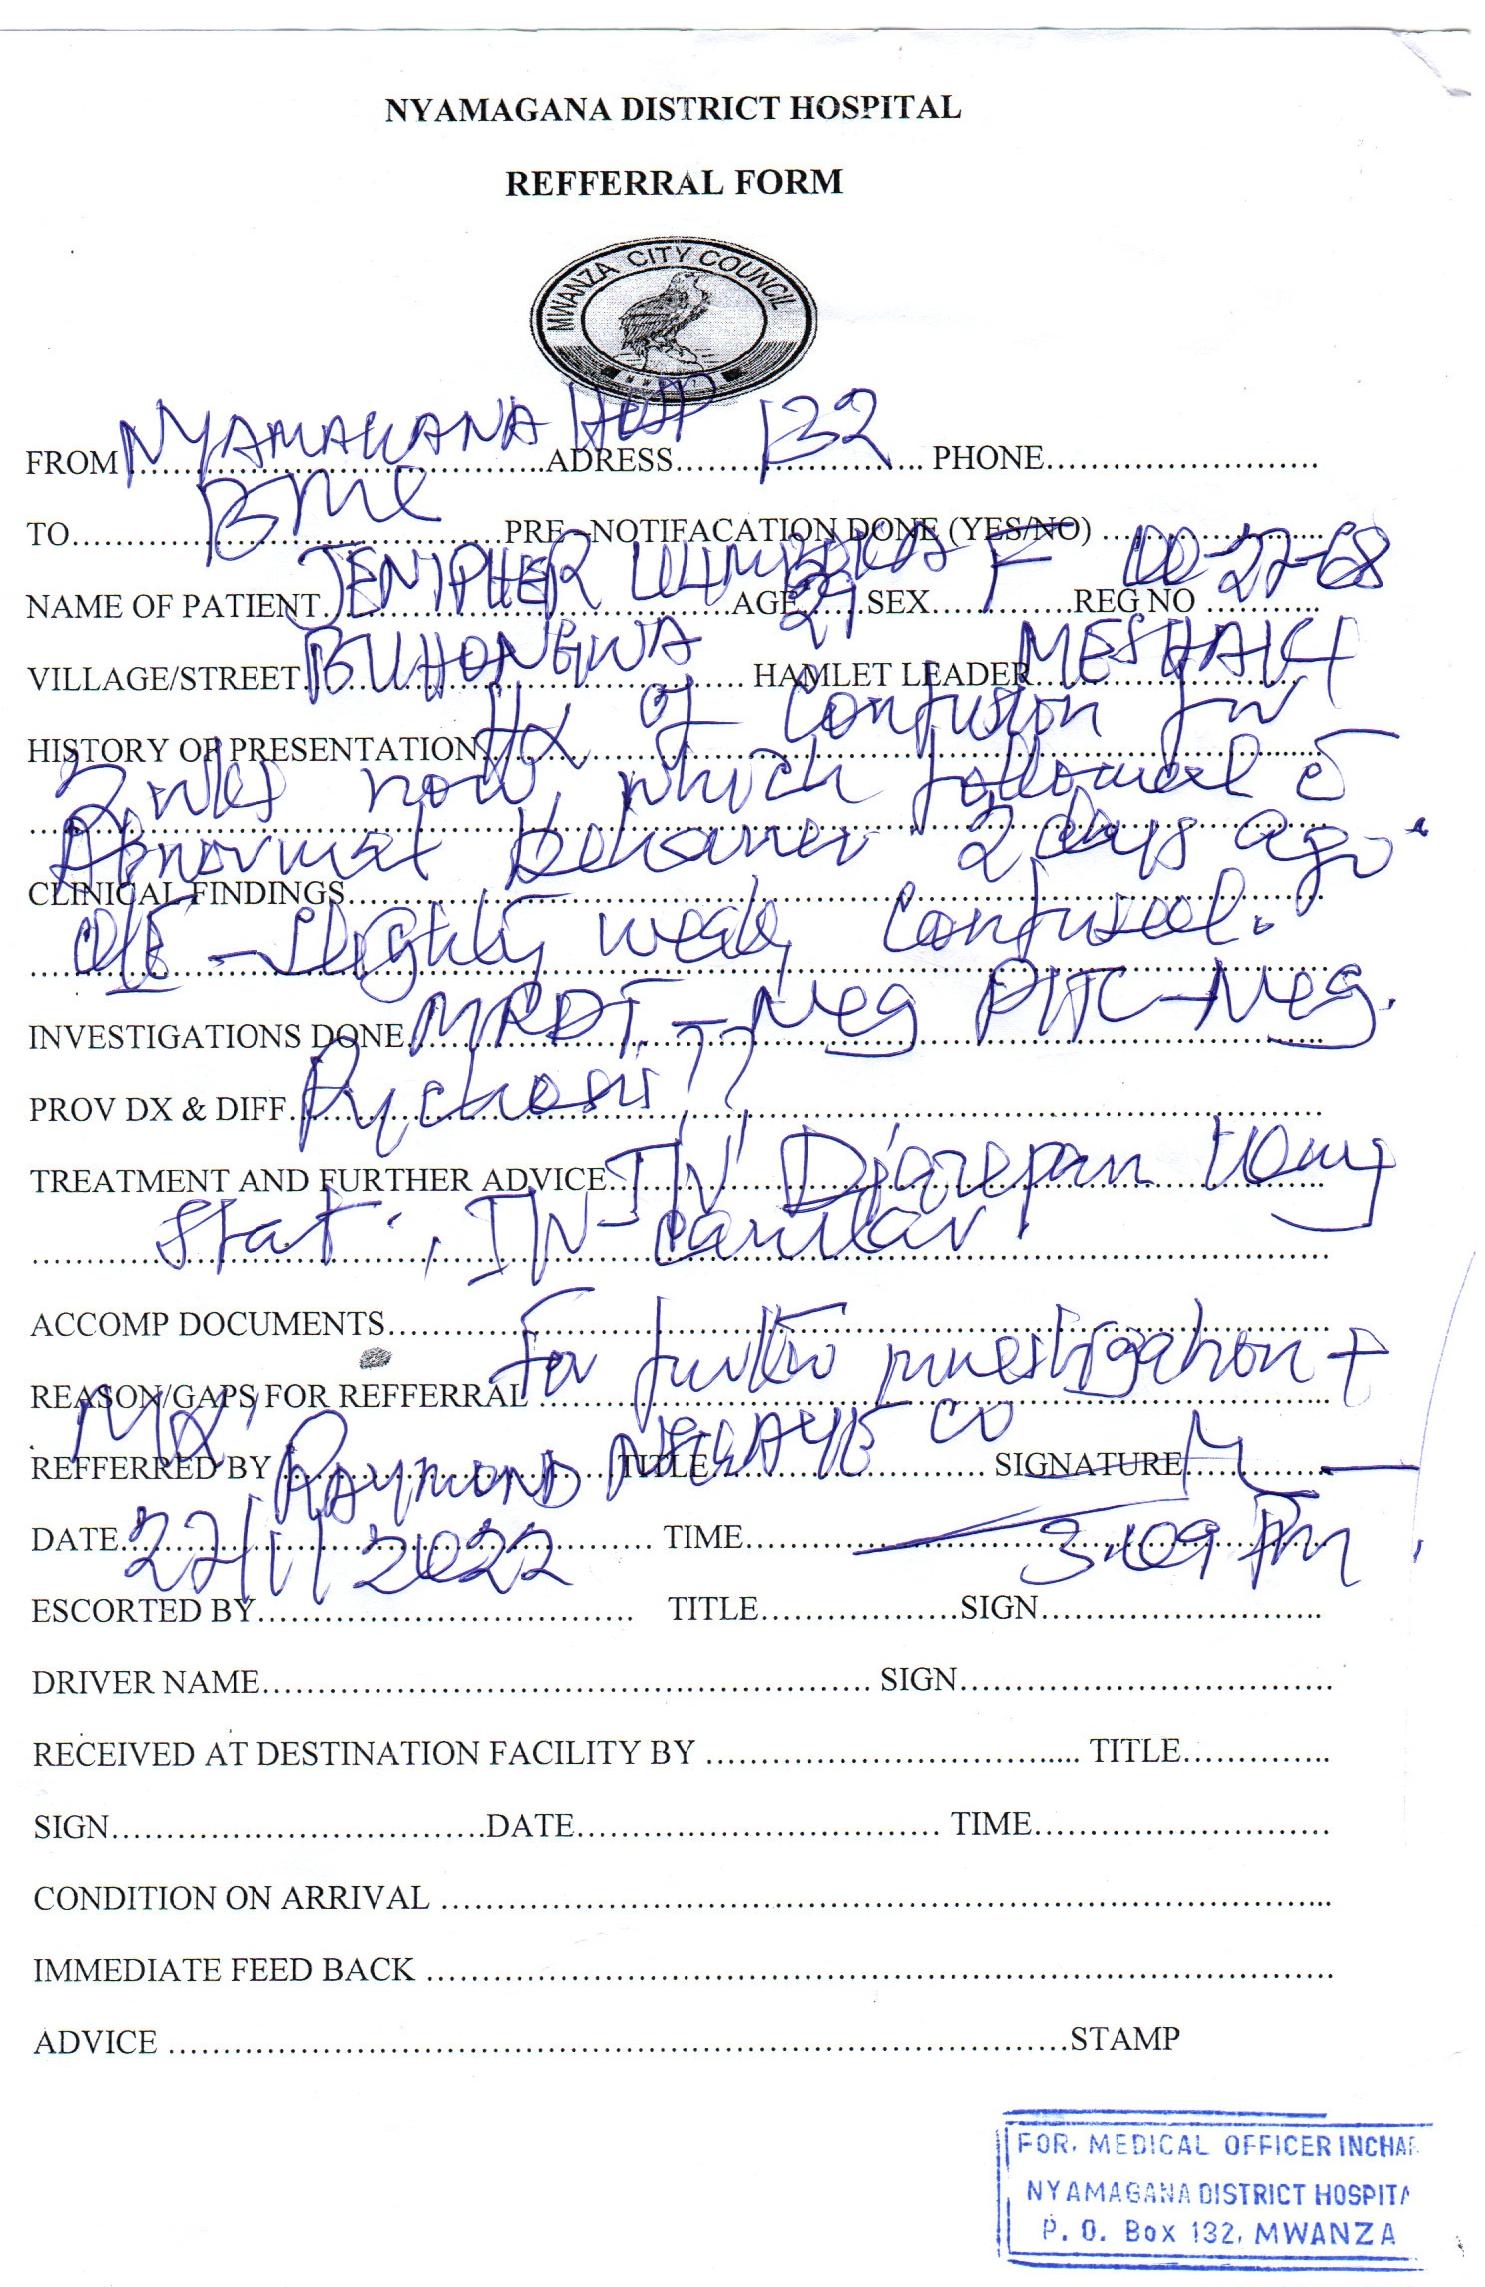 NYAMAGANA DISTRICT HOSPITAL
REFFERRAL FORM
MWANZA CITY COUNCIL
FROM NYAMAGANA HOSP ADRESS 132 PHONE
TO BMC PRE-NOTIFACATION DONE (YES/NO)
NAME OF PATIENT JENIPHER AGE 29 SEX F REG NO 00-22-68
VILLAGE/STREET BUHONGWA HAMLET LEADER MESHACK
HISTORY OF PRESENTATION Hx of Confusion for
2 wks now, which followed c̄
Abnormal behavier 2 days ago.
CLINICAL FINDINGS
O/E - Slightly weak, Confused.
INVESTIGATIONS DONE MRDT - Neg PITC - Neg.
PROV DX & DIFF. Pychosis??
TREATMENT AND FURTHER ADVICE IV Diazepam 10mg
stat, IV canular
ACCOMP DOCUMENTS
REASON/GAPS FOR REFFERRAL For further investigation +
Mx.
REFFERRED BY RAYMOND TITLE CO SIGNATURE
DATE 22/11/2022 TIME 3:09 Pm
ESCORTED BY TITLE SIGN
DRIVER NAME SIGN
RECEIVED AT DESTINATION FACILITY BY TITLE
SIGN DATE TIME
CONDITION ON ARRIVAL
IMMEDIATE FEED BACK
ADVICE STAMP
FOR. MEDICAL OFFICER INCHAR
NYAMAGANA DISTRICT HOSPITA
P. O. Box 132, MWANZA